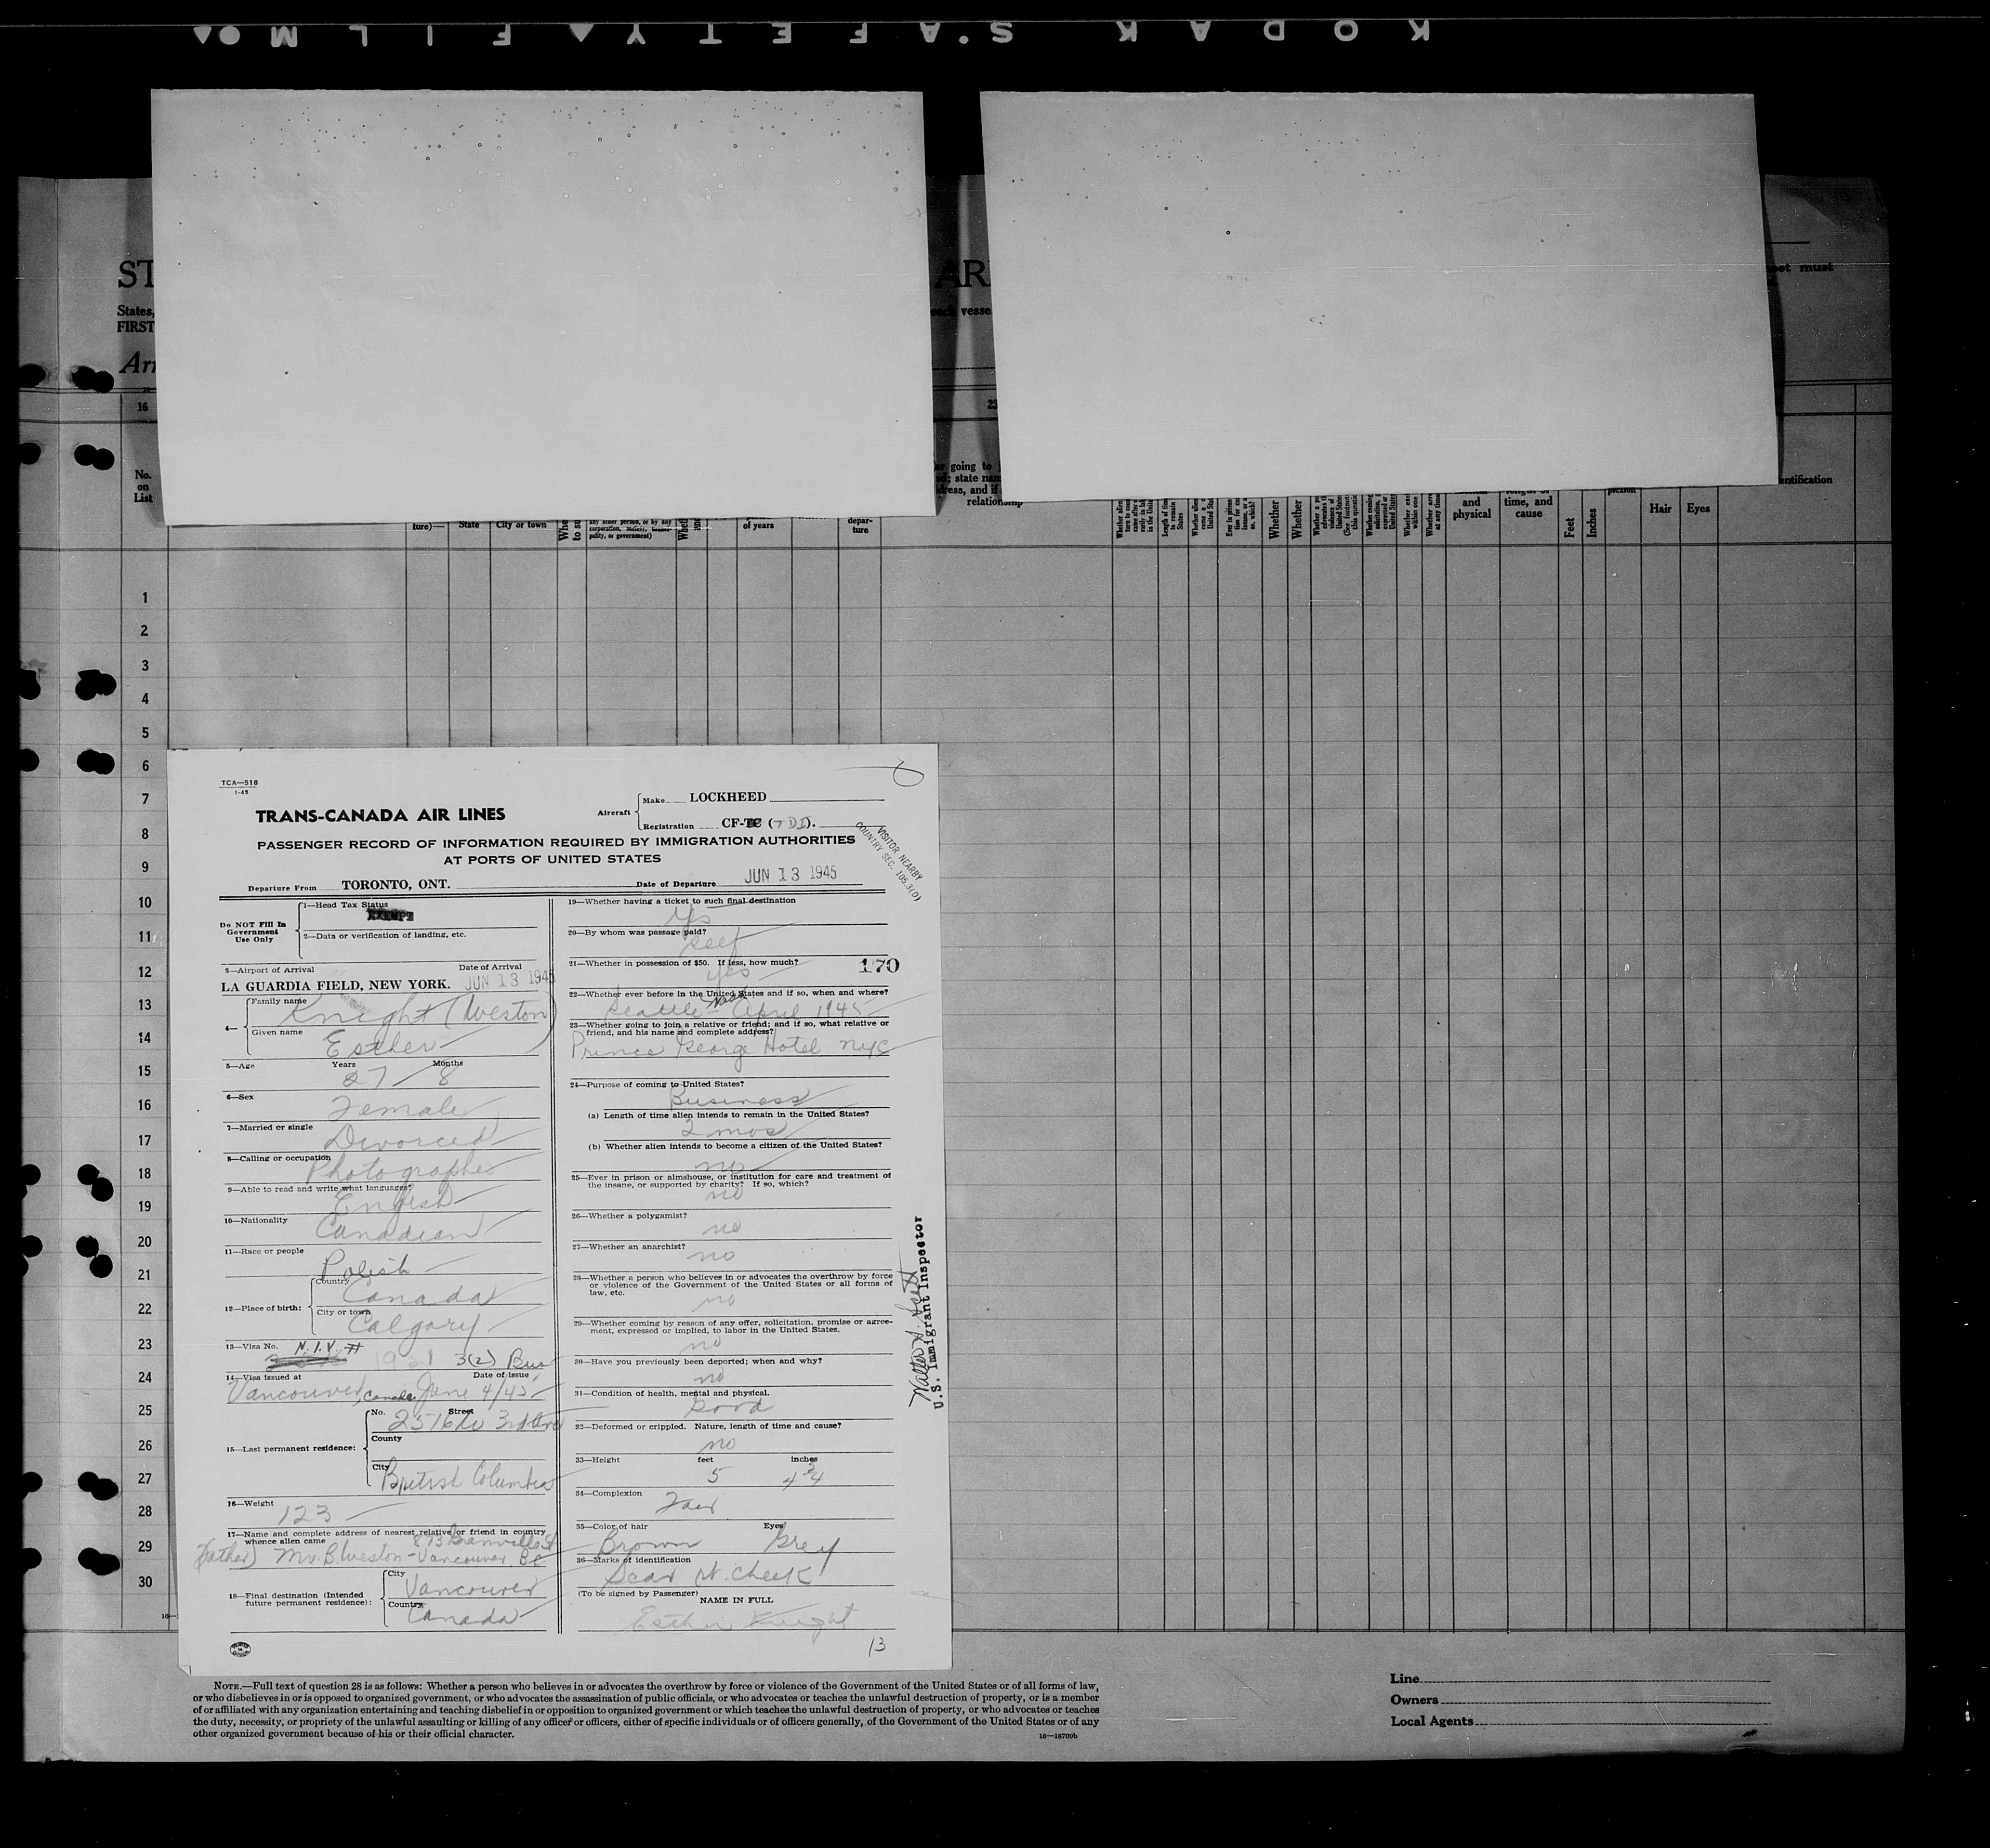 KODAK S'AFETY FILM
ST
AR
eet must
States,
each vesse
FIRST
Arr
16
23
No.
on
List
ture)—
State
City or town
any other person, or by any
corporation, society, munici-
pality, or government)
of years
depar-
ture
er going to
ed; state nam
dress, and if
relationship
and
physical
time, and
cause
Feet
Inches
Hair
Eyes
entification
1
2
3
4
5
6
7
8
9
10
11
12
13
14
15
16
17
18
19
20
21
22
23
24
25
26
27
28
29
30
TCA—518
1-45
TRANS-CANADA AIR LINES
Aircraft
Make LOCKHEED
Registration CF-TC (TDI).
PASSENGER RECORD OF INFORMATION REQUIRED BY IMMIGRATION AUTHORITIES
AT PORTS OF UNITED STATES
VISITOR NEARBY
COUNTRY SEC. 105.3(D)
Departure From TORONTO, ONT. Date of Departure JUN 13 1945
Do NOT Fill In
Government
Use Only
1—Head Tax Status
EXEMPT
2—Data or verification of landing, etc.
3—Airport of Arrival Date of Arrival
LA GUARDIA FIELD, NEW YORK. JUN 13 1945
4—
Family name
Knight (Weston)
Given name
Esther
5—Age Years Months
27 8
6—Sex
Female
7—Married or single
Divorced
8—Calling or occupation
Photographer
9—Able to read and write what languages?
English
10—Nationality
Canadian
11—Race or people
Polish
12—Place of birth:
Country
Canada
City or town
Calgary
13—Visa No. N.I.V. #
3(2) Bus
14—Visa issued at Date of issue
Vancouver, Canada June 4/45
15—Last permanent residence:
No. Street
2576 W 3rd Ave
County
City
British Columbia
16—Weight
123
17—Name and complete address of nearest relative or friend in country
whence alien came 873 Granville St
(Father) Mr B Weston - Vancouver BC
18—Final destination (Intended
future permanent residence):
City
Vancouver
Country
Canada
19—Whether having a ticket to such final destination
Yes
20—By whom was passage paid?
Self
21—Whether in possession of $50. If less, how much?
yes
170
22—Whether ever before in the United States and if so, when and where?
Seattle Wash April 1945
23—Whether going to join a relative or friend; and if so, what relative or
friend, and his name and complete address?
Prince George Hotel NYC
24—Purpose of coming to United States?
Business
(a) Length of time alien intends to remain in the United States?
2 mos
(b) Whether alien intends to become a citizen of the United States?
no
25—Ever in prison or almshouse, or institution for care and treatment of
the insane, or supported by charity? If so, which?
no
26—Whether a polygamist?
no
27—Whether an anarchist?
no
28—Whether a person who believes in or advocates the overthrow by force
or violence of the Government of the United States or all forms of
law, etc.
no
29—Whether coming by reason of any offer, solicitation, promise or agree-
ment, expressed or implied, to labor in the United States.
no
30—Have you previously been deported; when and why?
no
31—Condition of health, mental and physical.
Good
32—Deformed or crippled. Nature, length of time and cause?
no
33—Height feet inches
5 4 3/4
34—Complexion
Fair
35—Color of hair Eyes
Brown Grey
36—Marks of identification
Scar rt. cheek
(To be signed by Passenger)
NAME IN FULL
Esther Knight
13
U.S. Immigrant Inspector
NOTE.—Full text of question 28 is as follows: Whether a person who believes in or advocates the overthrow by force or violence of the Government of the United States or of all forms of law,
or who disbelieves in or is opposed to organized government, or who advocates the assassination of public officials, or who advocates or teaches the unlawful destruction of property, or is a member
of or affiliated with any organization entertaining and teaching disbelief in or opposition to organized government or which teaches the unlawful destruction of property, or who advocates or teaches
the duty, necessity, or propriety of the unlawful assaulting or killing of any officer or officers, either of specific individuals or of officers generally, of the Government of the United States or of any
other organized government because of his or their official character.
16—18700b
Line
Owners
Local Agents